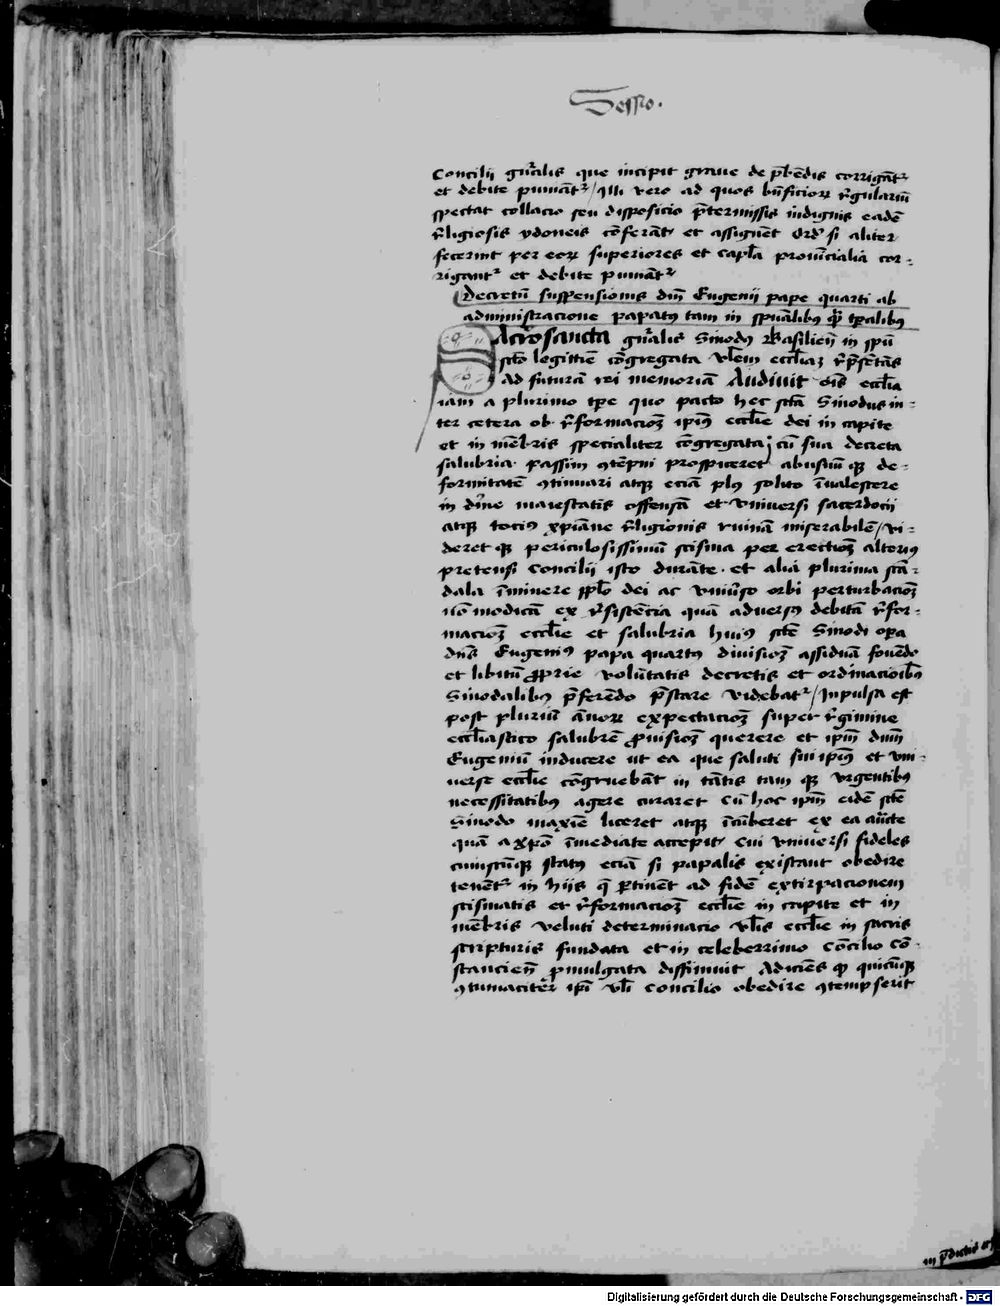 Sessio.
Concilii gn̄ralis que incipit graue de p̄bēdis corrigātʳ
et debite puniātʳ / Illi vero ad quos bn̄ficiorꝝ r̄gulariū
spectat collacio seu disposicio p̄termissis indignis eadē
r̄ligiosis ydoneis cōferāt et assignēt Qrd᷒ si aliter
fecerint per eorꝝ superiores et capl̄a prouīcialia cor-
rigantʳ et debite puniātʳ
Decretū suspensionis dn̄i Eugenii pape quarti ab
administracione papatꝰ tam in spūalibꝰ qȝ tp̄alibꝰ
Sacrosancta gn̄ralis Sinodꝰ Basilien̄ in spū
sctō legittīe cōgregata vl̄em eccl̄iaȝ r̄p̄sētās
ad futurā rei memoriā Audiuit oīs eccl̄ia
iam a plurimo tp̄e quo pacto hec sctā Sinodus in-
ter cetera ob r̄formacioēȝ ipīus eccl̄ie dei in capite
et in mēbris specialiter cōgregata cū sua decreta
salubria passim ꝯtēpni prospiceret abusuū qȝ de-
formitatē ꝯtinuari atqȝ eciā plꝰ solito īualescere
in diīne maiestatis offensā et vniuersi sacerdocii
atqȝ tociꝰ xpiāne r̄ligionis ruinā miserabilē / vi-
deret qȝ periculosissimū scisma per erectioēȝ alteriꝰ
pretensi Concilii isto durāte. et alia plurima scā-
dala īminere ppl̄o dei ac vniūso orbi perturbacioēȝ
nō modicā ex r̄sistēcia quā aduersꝰ debitā r̄for-
macioēȝ eccl̄ie et salubria huiꝰ sctē Sinodi oꝑa
dn̄s Eugeniꝰ papa quartꝰ diuisioēȝ assiduā fouēdo
et libitū ꝓprie volūtatis decretis et ordinacioībꝰ
Sinodalibꝰ p̄ferēdo p̄stare videbatʳ / Inpulsa est
post plurium ānorꝝ expectacioēȝ super r̄gimine
eccl̄iastico salubrē ꝓuisioēȝ querere et ipīm dn̄m
Eugeniū inducere ut ea que saluti sui ipīus et vni-
uerse eccl̄ie cōgruebāt in tātis tam qȝ vrgentibꝰ
necessitatibꝰ agere curaret Cū hoc ipīm eidē sctē
Sinodo maxīe liceret atqȝ īcūberet ex ea auctē
quā a xpō īmediate accepit cui vniuersi fideles
cuiuscūqȝ statꝰ eciā si papalis existant obedire
tenētʳ in hiis q̄ ꝑtinēt ad fidē extirpacionem
scismatis et r̄formacioēȝ eccl̄ie in capite et in
mēbris veluti determinacio vl̄is eccl̄ie in sacris
scripturis fundata et in celeberrimo Cōcilio Cō-
stancien̄ ꝓmulgata diffiniuit Adiciēs qȝ quicūqȝ
ꝯtumaciter ipī vl̄i Concilio obedire ꝯtempserit
Digitalisierung gefördert durch die Deutsche Forschungsgemeinschaft - DFG